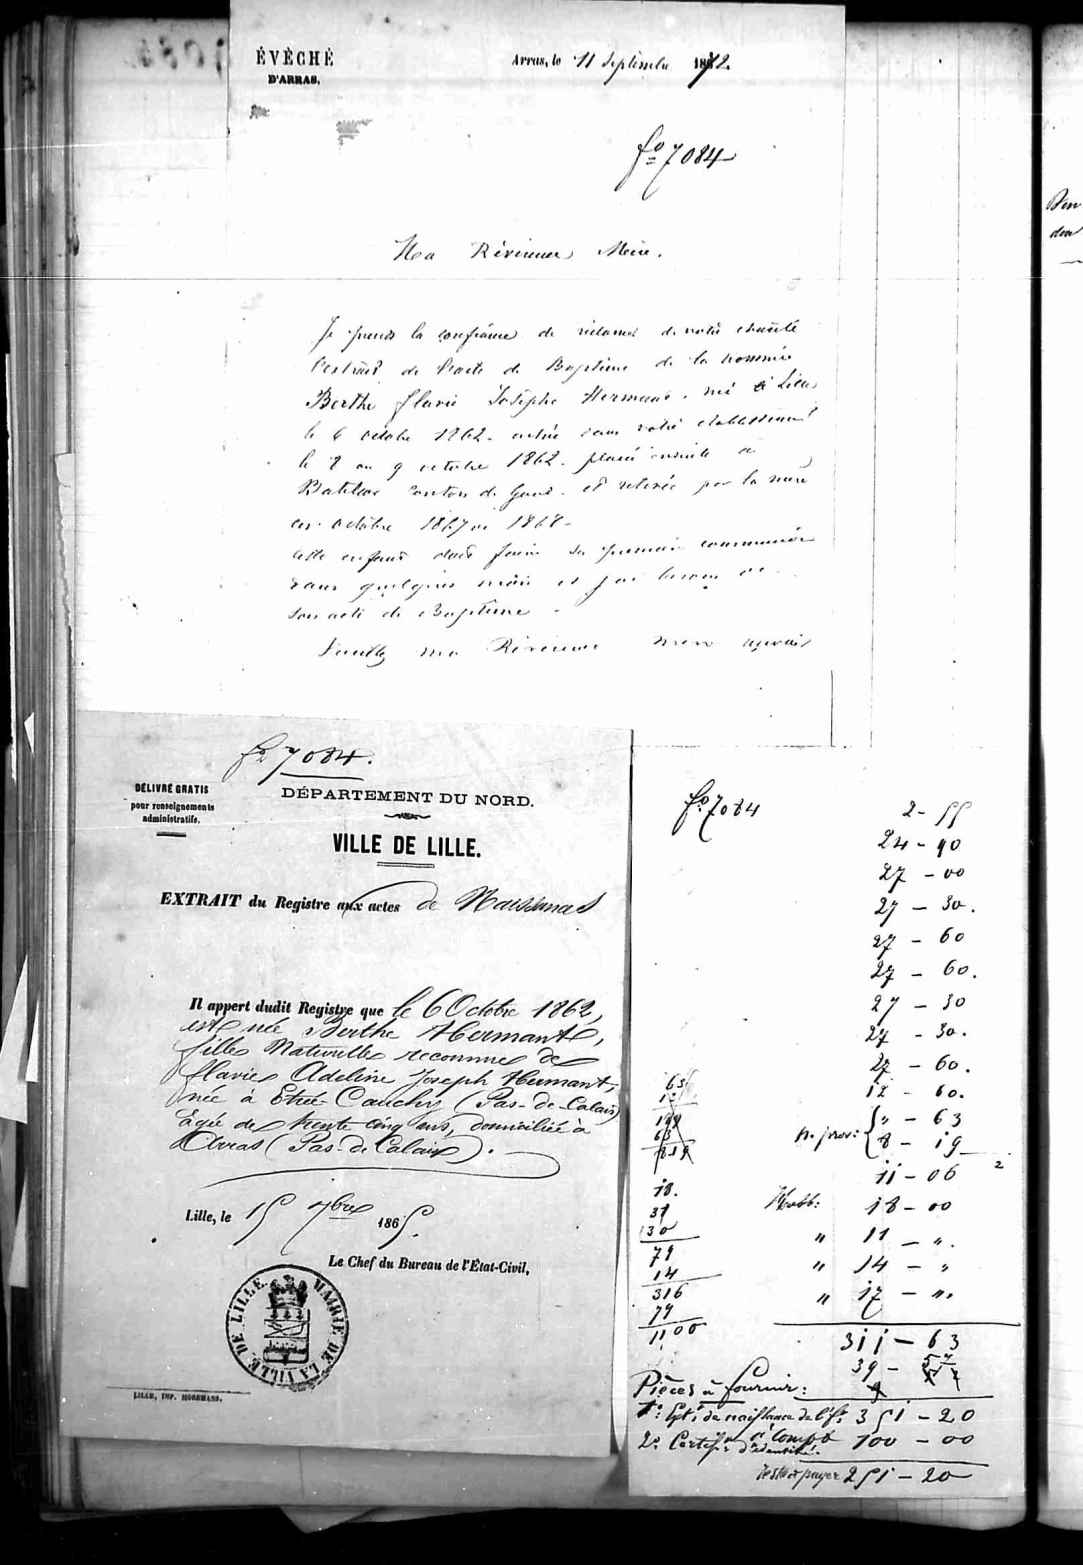 ÉVÊCHÉ
D'ARRAS.
Arras, le 11 Septembre 1872
fo 7084
Ma Révérende Mère.
Je prends la confiance de réclamer de votre charité
l'extrait de l'acte de Baptême de la nommée
Berthe flavie Joséphe Hermant. née à Lille
le 6 octobre 1862. entrée dans votre établissement
le 8 ou 9 octobre 1862. placée ensuite à
canton de Gand. et retirée par la mère
en octobre 1867 ou 1868-
cette enfant doit faire sa première communion
dans quelques mois et j'ai besoin de
son acte de Baptême -
Veuillez ma Révérende Mère
fo 7084.
DÉLIVRÉ GRATIS
pour renseignements
administratifs.
DÉPARTEMENT DU NORD.
VILLE DE LILLE.
EXTRAIT du Registre aux actes de Naissances
Il appert dudit Registre que le 6 Octobre 1862,
est née Berthe Hermant,
fille Naturelle reconnue de
flavie Adeline Joseph Hermant,
née à Etrée Cauchy (Pas-de-Calais)
âgée de trente cinq ans, domiciliée à
Arras (Pas-de-Calais).
Lille, le 15 7bre 1865.
Le Chef du Bureau de l'État-Civil,
MAIRIE DE LA VILLE DE LILLE
LILLE, IMP. HOREMANS.
fo 7084
2 - 55
24 - 90
27 - 00
27 - 30.
27 - 60
27 - 60.
27 - 30
27 - 30.
27 - 60.
12 - 60.
{ " - 63
8 - 19
11 - 06
18 - 00
" 11 - ".
" 14 - "
" 17 - ".
311 - 63
39 - 57
18.
31
30
79
14
316
79
1100
Pièces à fournir:
1o: Ext. de naissance de l'ft 351 - 20
2o Certif. d'identité. à compte 100 - 00
reste à payer 251 - 20